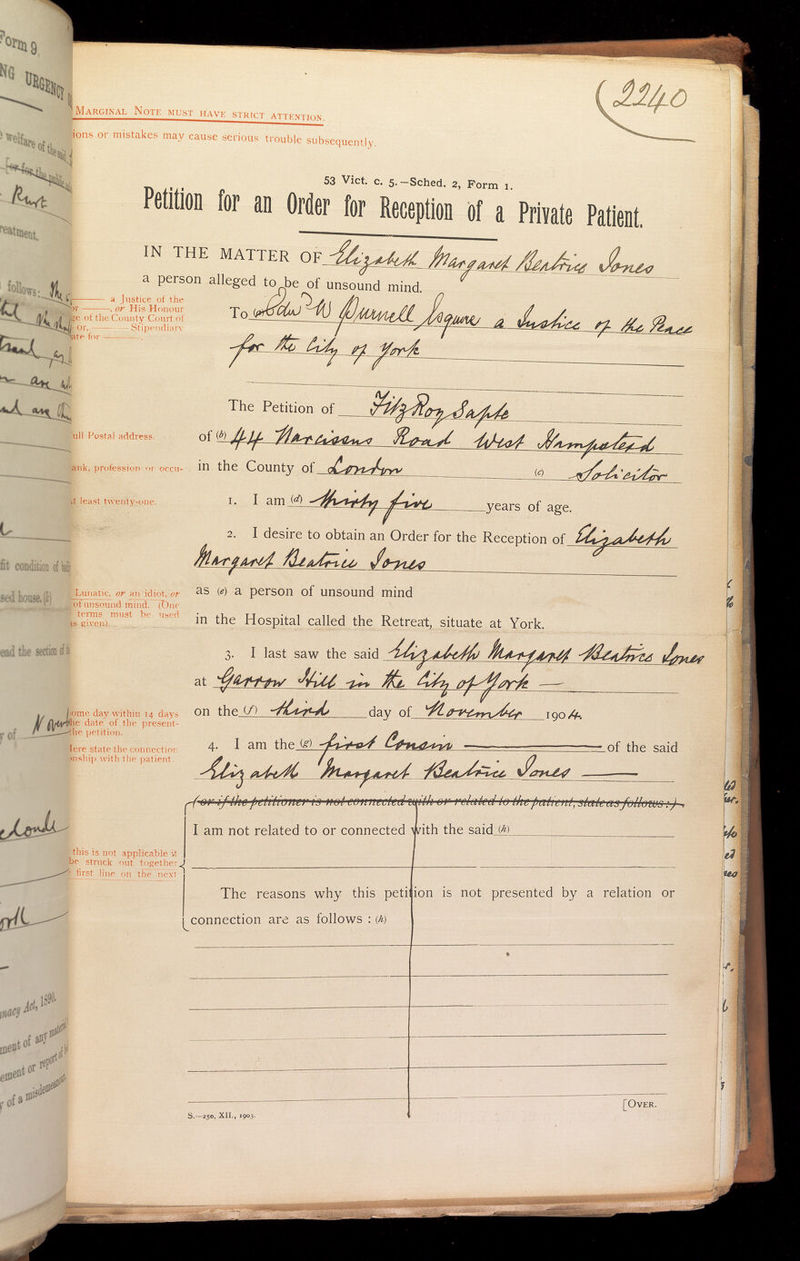 2240
MARGINAL NOTE MUST HAVE STRICT ATTENTION.
ions or mistakes may cause serious trouble subsequently.
53 Vict. c. 5.—Sched. 2, Form 1.
Petition for an Order for Reception of a Private Patient.
IN THE MATTER OF Elizabeth Margaret Beatrice Jones
a person alleged to be of unsound mind.
a Justice of the
or His Honour
ge of the County Court of
or, Stipendiary
ate for
To W Purnell Esquire a Justice of the Peace
for the City of York
The Petition of FitzRoy Sapte
ull Postal address.
of (b) 44 Narcissus Road West Hampstead
ank, profession or occu-
in the County of London (c) Solicitor
t least twenty-one.
1. I am (d) thirty five years of age.
2. I desire to obtain an Order for the Reception of Elizabeth
Margaret Beatrice Jones
Lunatic, or an idiot, or
of unsound mind. (One
terms must be used
is given).
as (e) a person of unsound mind
in the Hospital called the Retreat, situate at York.
3. I last saw the said Elizabeth Margaret Beatrice Jones
at Garrow Hill in the City of York —
ome day within 14 days
the date of the present-
the petition.
on the (f) third day of November 1904.
ere state the connection
onship with the patient.
4. I am the (g) first Cousin — of the said
Elizabeth Margaret Beatrice Jones —
(or if the petitioner is not connected with or related to the patient, state as follows:)
I am not related to or connected with the said (h)
this is not applicable it
be struck out together
first line on the next
The reasons why this petition is not presented by a relation or
connection are as follows : (h)
[OVER.
S.—250, XII., 1903.
Form 9.
NG URGENCY
welfare of the said
[or for the public
reatment.
follows:
fit condition of
sed house. (
ead the section of
r of
Act, 1890.
ment of any material
ement or report of
r of a misdemeanour